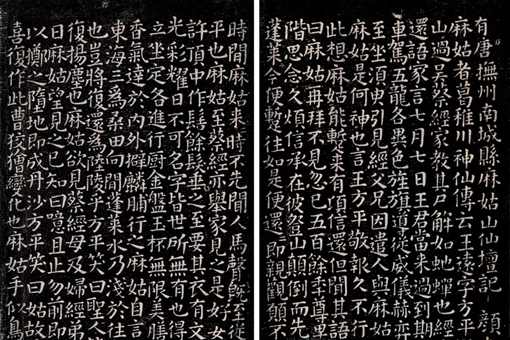 有唐撫州南城縣麻姑山仙壇記 顏
麻姑者葛稚川神仙傳云王遠字方平
山過吳蔡經家教其尸解如蛇蟬也經
還語家言七月七日王君當來過到期
車駕五龍各異色旌旗導從威儀赫弈
至坐須臾引見經父兄因遣人與麻姑
麻姑是何神也言王方平敬報久不行
此想麻姑能蹔來有頃信還但聞其語
曰麻姑再拜不見忽已五百餘年尊卑
階思念久煩信承在彼登山顛倒而先
蓬萊今便蹔往如是便還還即親觀願不
時間麻姑來來時不先聞人馬聲既至從
平也麻姑至蔡經亦舉家見之是好女
許頂中作髻餘髮垂之至要其衣有文
光彩耀日不可名字皆世所無有也得
立坐定各進行廚金盤玉杯無限美膳
香氣達於內外擗麟脯行之麻姑自言
東海三為桑田向間蓬萊水乃淺於往
也豈將復還為陸陵乎方平笑曰聖人
復揚塵也麻姑欲見蔡經母及婦經弟
日麻姑望見之已知曰噫且止勿前即
以擲之墮地即成丹沙方平笑曰姑故
喜復作此曹狡獪變化也麻姑手似鳥